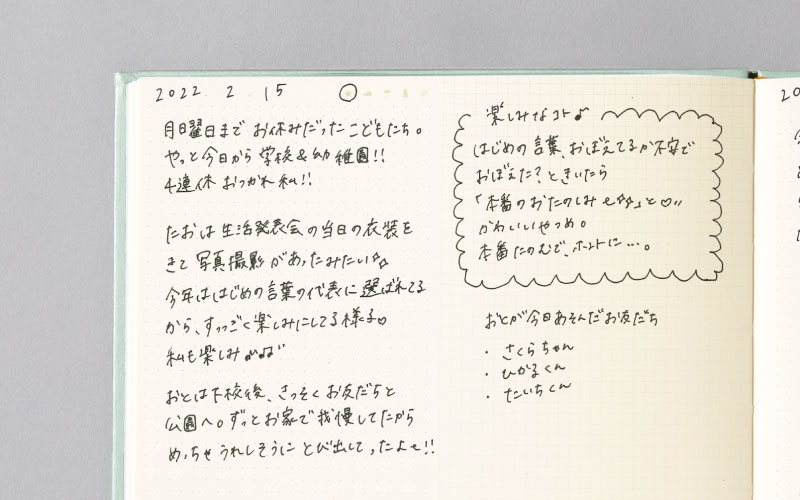 2022 2 15
月曜日まで お休みだったこどもたち。
やっと今日から 学校&幼稚園!!
4連休 おつかれ 私!!
たおは 生活発表会の当日の衣装を
きて 写真撮影があったみたい☆☆
今年ははじめの言葉の代表に選ばれてる
から、すっごく楽しみにしてる様子♡
私も楽しみ♪♫"
おとは下校後、さっそくお友だちと
公園へ。ずっとお家で我慢してたから
めっちゃうれしそうに とび出してったよ〜!!
楽しみなコト♪
はじめの言葉、おぼえてるか不安で
おぼえた?ときいたら
「本番のおたのしみ〜☆☆」と♡"
かわいいやつめ。
本番たのむで、ホントに…。
おとが今日あそんだお友だち
・さくらちゃん
・ひかるくん
・たいちくん
20